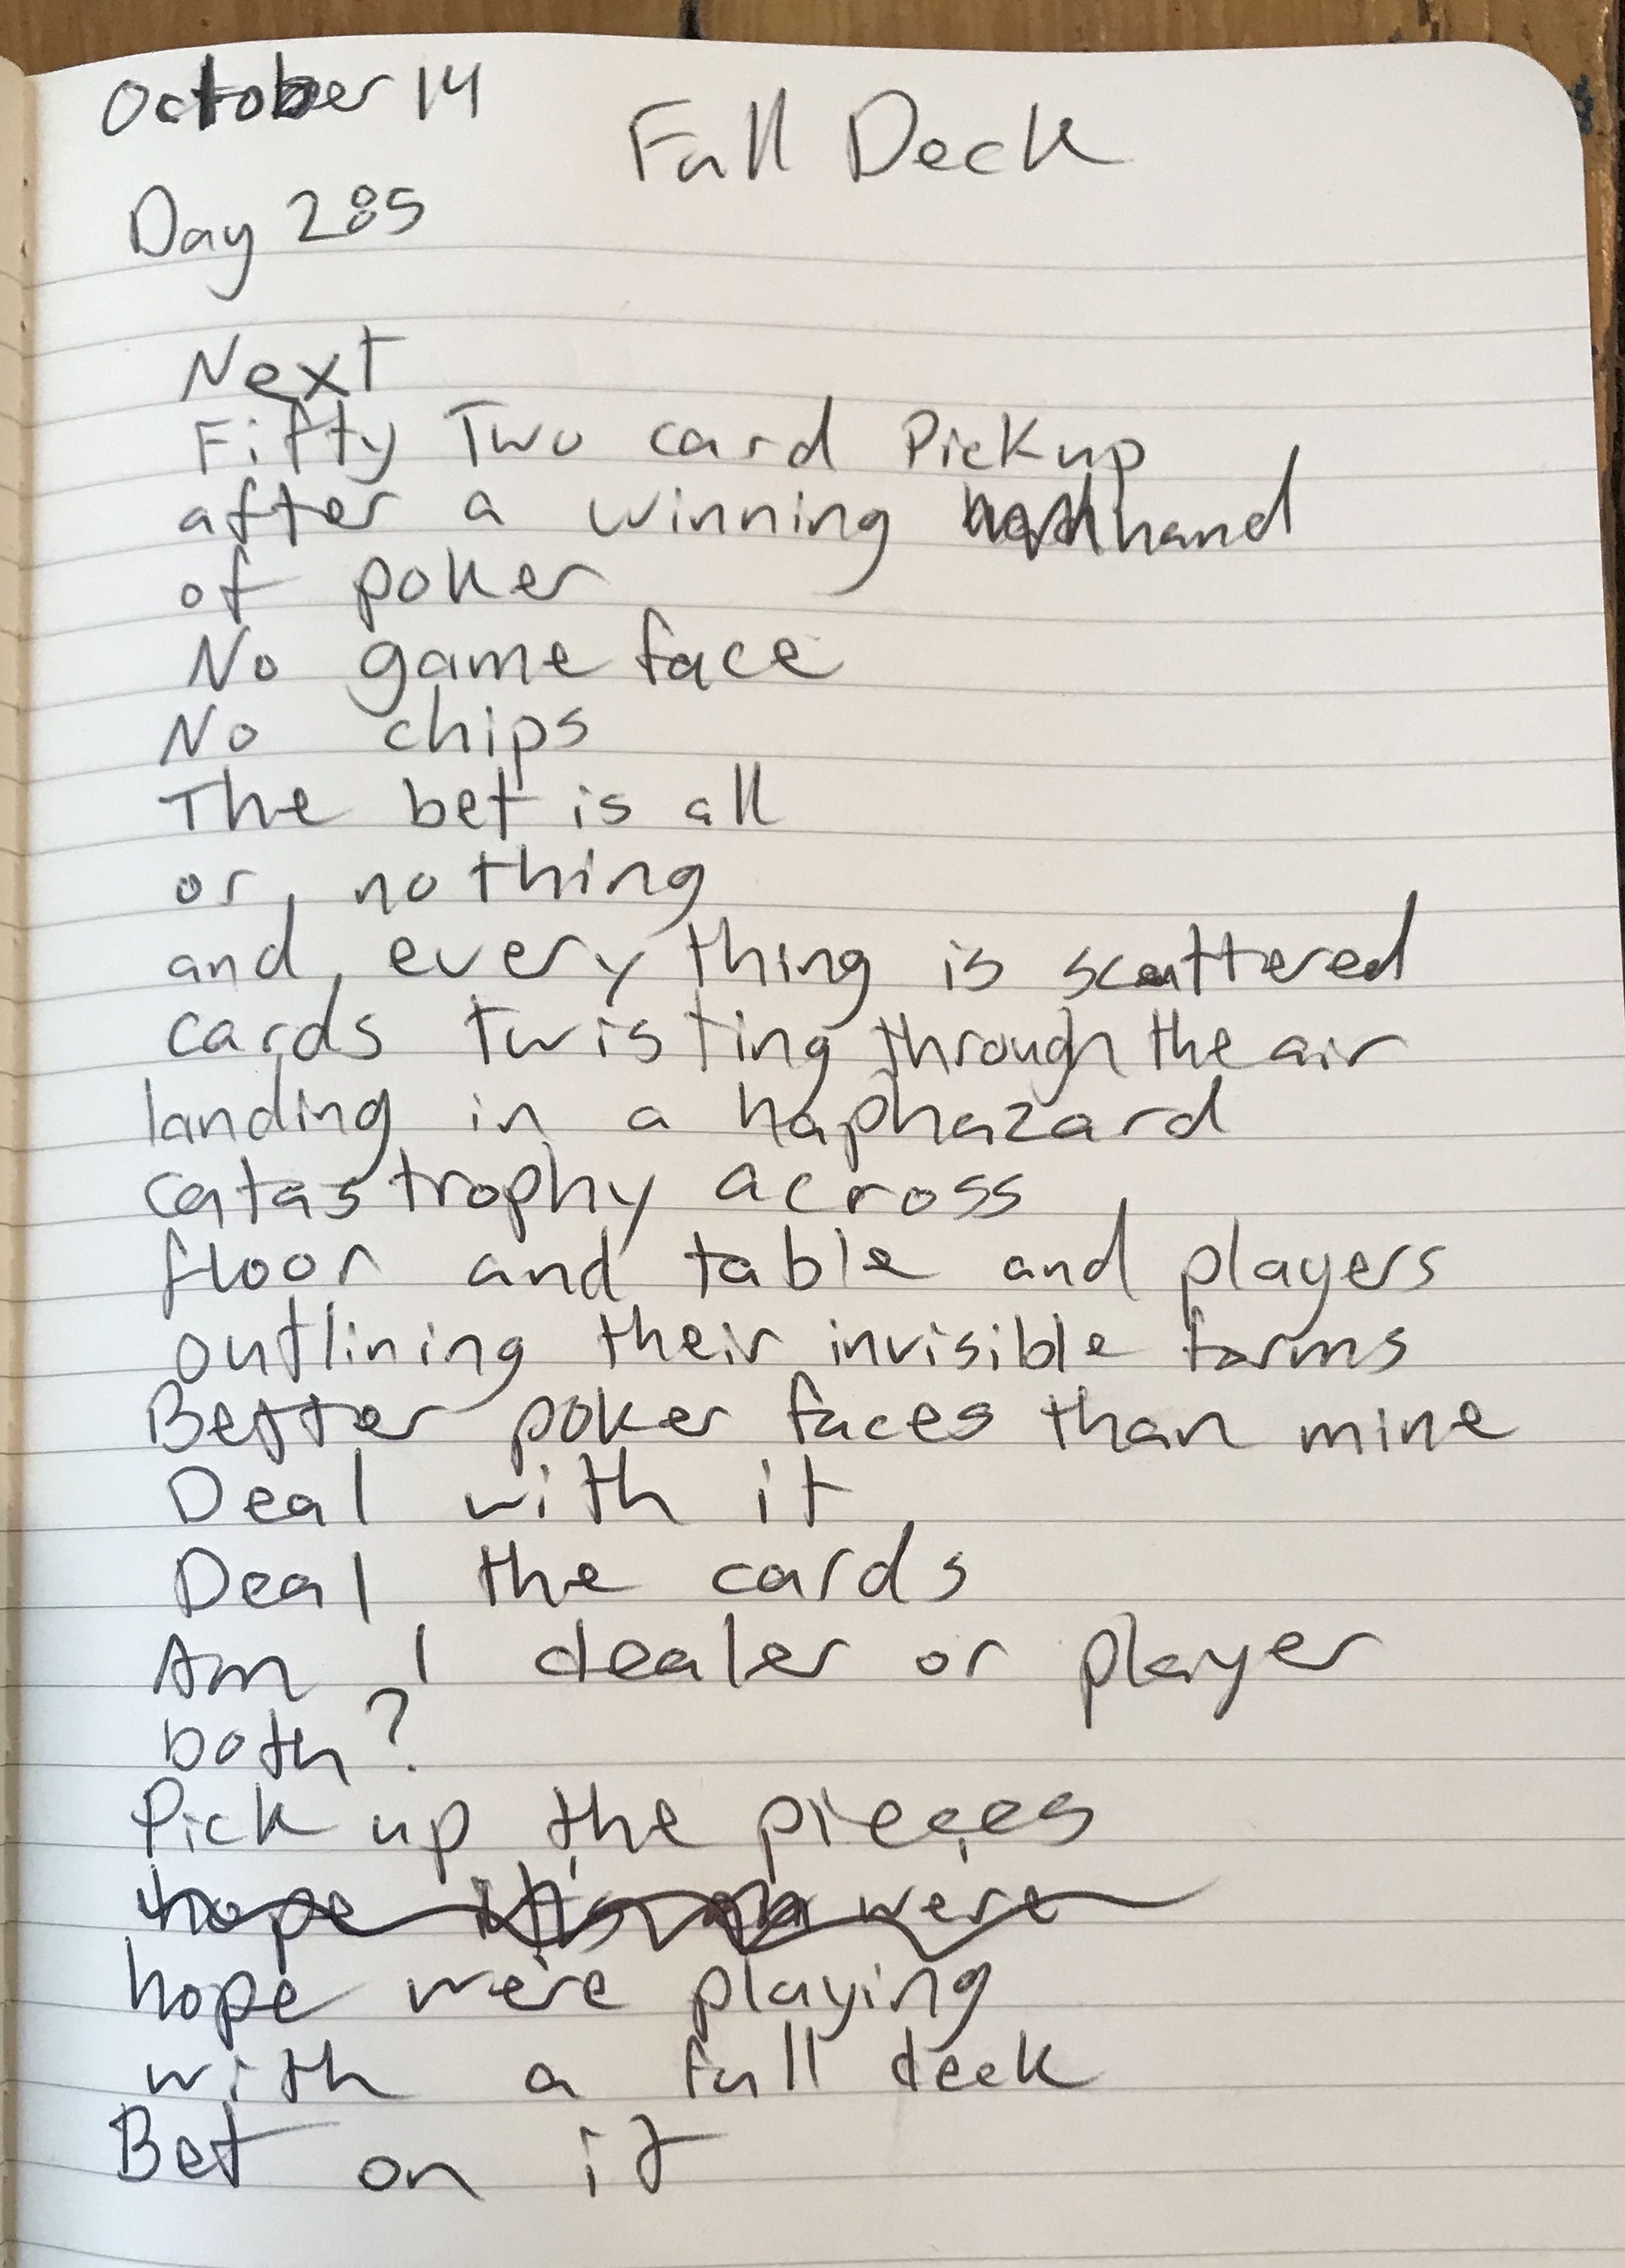 October 14
Full Deck
Day 285
Next
Fifty Two card Pickup
after a winning hand
of poker
No game face
No chips
The bet is all
or nothing
and everything is scattered
cards twisting through the air
landing in a haphazard
catastrophy across
floor and table and players
outlining their invisible forms
Better poker faces than mine
Deal with it
Deal the cards
Am I dealer or player
both?
Pick up the pieces
hope it's were
hope we're playing
with a full deck
Bet on it